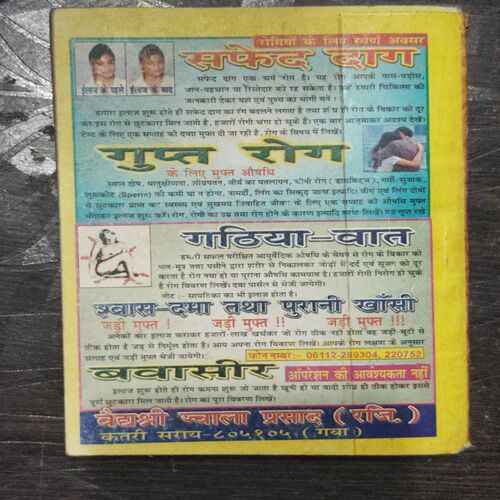 रोगियों के लिए स्वर्ण अवसर
सफेद दाग
इलाज के पहले इलाज के बाद
सफेद दाग एक चर्म रोग है। यह रोग आपके पास-पड़ोस,
जान-पहचान या रिस्तेदार को रह सकता है। उन्हें हमारी चिकित्सा की
जानकारी देकर यश एवं पुण्य का भागी बनें।
हमारा इलाज शुरू होते ही सफेद दाग का रंग बदलने लगता है तथा शीघ्र ही रोग के विकार को दूर
कर इस रोग से छुटकारा मिल जाती है, हजारों रोगी चंगा हो चुके हैं। एक बार आजमाकर अवश्य देखें।
टेस्ट के लिए एक सप्ताह की दवा मुफ्त दी जा रही है, रोग के विषय में लिखें।
गुप्त रोग
के लिए मुफ्त औषधि
स्वप्न दोष, धातुक्षीणता, शीघ्रपतन, वीर्य का पतलापन, चीनी रोग (डायबिटिज), गर्मी-सुजाक,
शुक्रकीट (Sperm) की कमी या न होना, नामर्दी, लिंग का सिकुड़ जाना इत्यादि। वीर्य एवं लिंग दोषों
से छुटकारा प्राप्त कर स्वस्थ्य एवं सुखमय जीवन के लिए एक सप्ताह की औषधि मुफ्त
मंगाकर इलाज शुरू करें। रोग, रोगी का उम्र तथा रोग होने के कारण इत्यादि स्पष्ट लिखें। पत्र गुप्त रखे
गठिया-वात
हमारी सफल परीक्षित आयुर्वेदिक औषधि के सेवन से रोग के विकार को
मल-मुत्र तथा पसीने द्वारा शरीर से निकालकर जोड़ों में दर्द एवं सुजन को दूर
करता है रोग नया हो या पुराना औषधि कामयाब है। हजारों रोगी निरोग हो चुके
है रोग विवरण लिखें। दवा पार्सल से भेजी जायेगी।
नोट :- सायटिका का भी इलाज होता है।
श्वास-दमा तथा पुरानी खाँसी
जड़ी मुफ्त ! जड़ी मुफ्त !! जड़ी मुफ्त !!!
अनेकों बार इलाज कराकर हजारों-लाख खर्चकर जो रोग ठीक नहीं होता वह जड़ी-बूटी से
ठीक होता है जड़ से निर्मूल होता है। आप अपना रोग विवरण लिखें। आपके रोग लक्षण के अनुसार
सलाह एवं जड़ी मुफ्त भेजी जायेगी।
फोन नम्बर:- 06112-289304, 220752
बवासीर
ऑपरेशन की आवंश्यकता नहीं
इलाज शुरू होते ही रोग कमना शुरू जो जाता है खुनी हो या वादी शीघ्र ही ठीक होकर इससे
पूर्ण छुटकारा मिल जाता है। रोग का पूरा विवरण लिखें।
वैद्यश्री ज्वाला प्रसाद (रजि.)
कतरी सराय-८०५१०५ (गया)